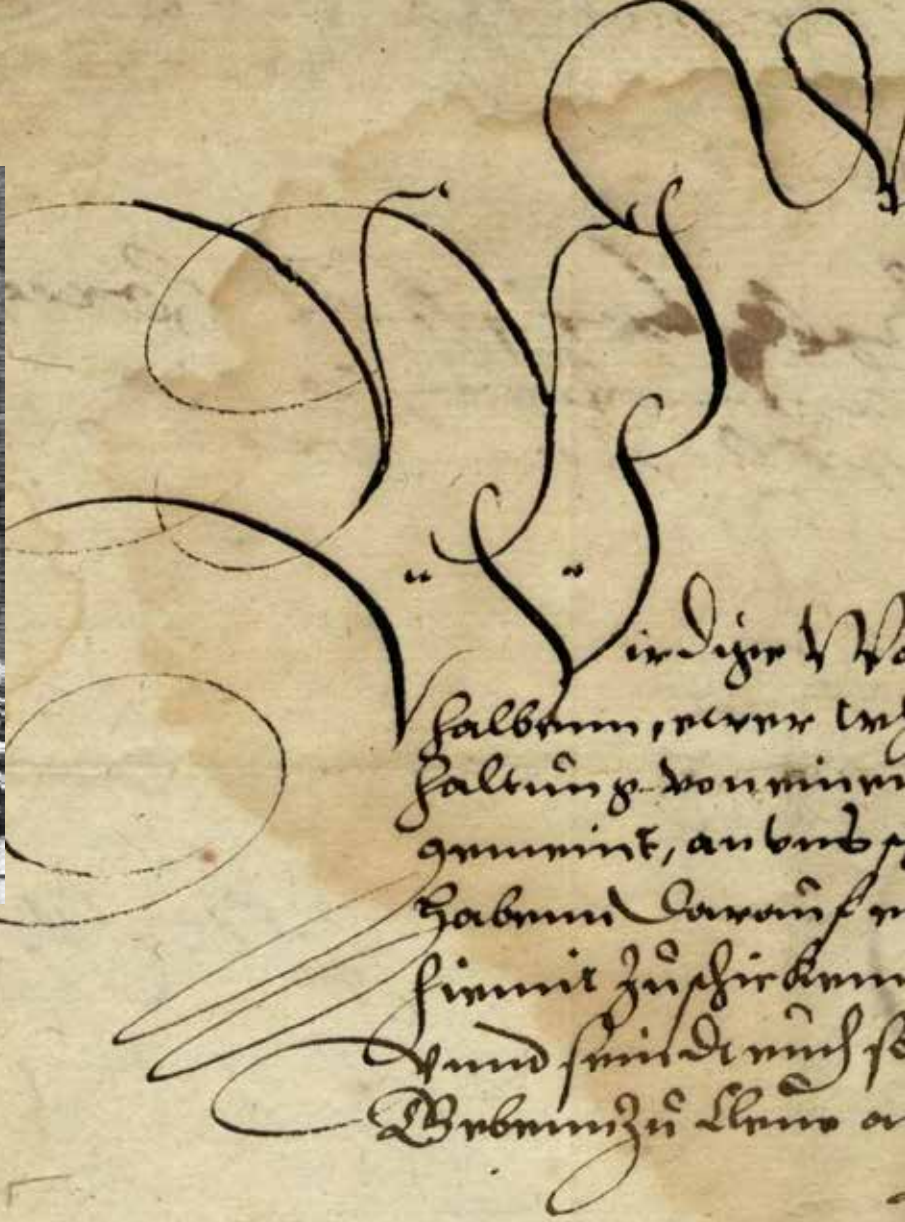 Wirdiger
halbenn, ewer
haltung von einem
gemeint, an vns
habenn darauf
hiemit zuschickenn
Vnnd seindt euch
Gebenn zu Cleue